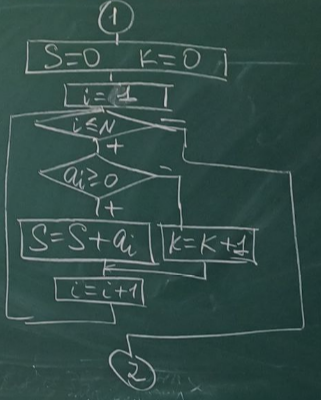 1
S=0 K=0
i=1
i≤N
+ −
ai≥0
+ −
S=S+ai K=K+1
i=i+1
2